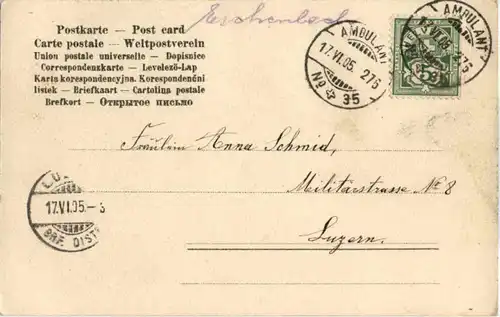 Eschenbach
Postkarte — Post card
Carte postale — Weltpostverein
Union postale universelle — Dopisnice
Correspondenzkarte — Levelező-Lap
Karta korespondencyjna. Korespondenční
lístek — Briefkaart — Cartolina postale
Brefkort — Открытое письмо
AMBULANT
17.VI.05. 276
No 35
AMBULANT
VI.05. 276
5
Fräulein Anna Schmid,
Militärstrasse No 8
Luzern.
LUZ
17.VI.05.- 3
BRF. DIST